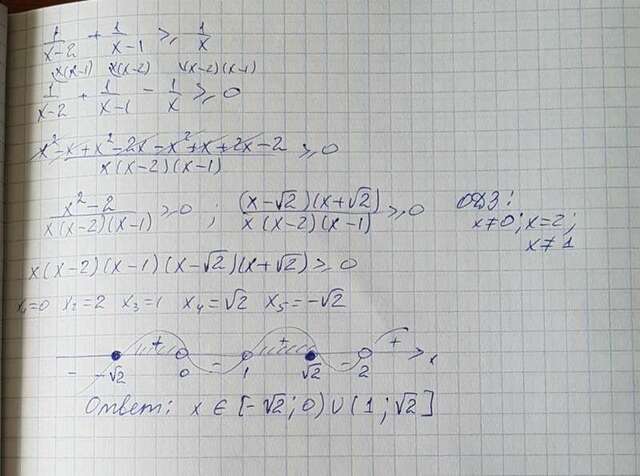 1/(x-2) + 1/(x-1) ≥ 1/x
x(x-1) x(x-2) (x-2)(x-1)
1/(x-2) + 1/(x-1) - 1/x ≥ 0
(x²-x+x²-2x-x²+x+2x-2)/(x(x-2)(x-1)) ≥ 0
(x²-2)/(x(x-2)(x-1)) ≥ 0 ; ((x-√2)(x+√2))/(x(x-2)(x-1)) ≥ 0 ОДЗ:
x≠0; x=2;
x≠1
x(x-2)(x-1)(x-√2)(x+√2) ≥ 0
x₁=0 x₂=2 x₃=1 x₄=√2 x₅=-√2
- + - + - + x
-√2 0 1 √2 2
Ответ: x ∈ [-√2; 0) ∪ (1; √2]